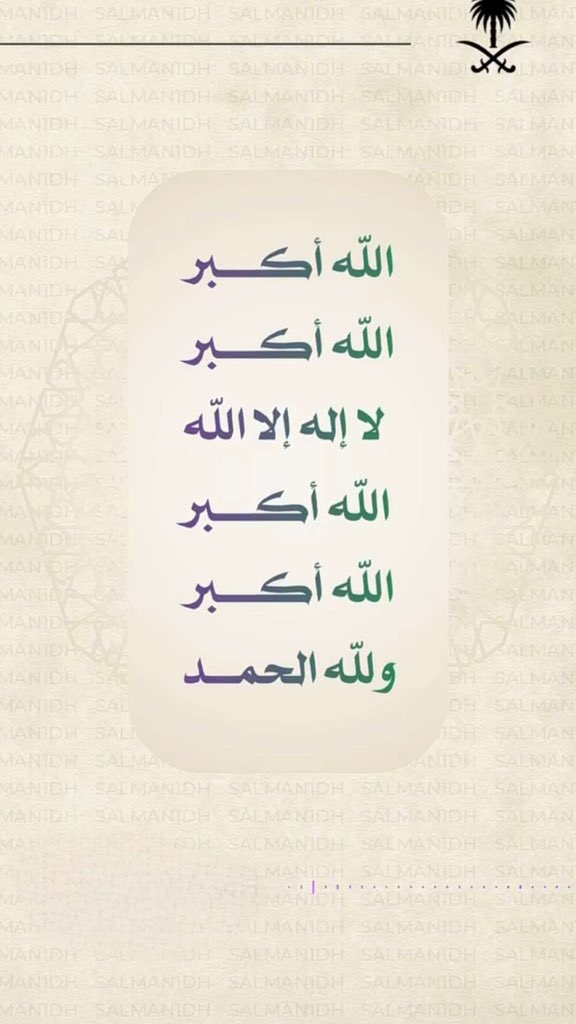 الله أكبر
الله أكبر
لا إله إلا الله
الله أكبر
الله أكبر
ولله الحمد
SALMAN1DH